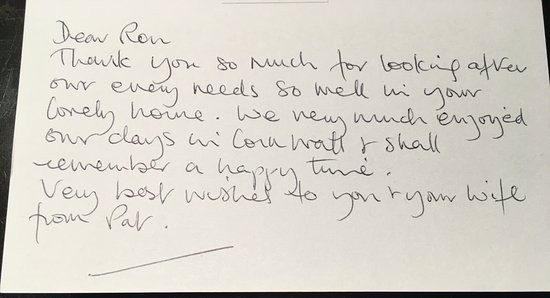 Dear Ron
Thank you so much for looking after
our every needs so well in your
lovely home. We very much enjoyed
our days in Cornwall & shall
remember a happy time.
Very best wishes to you & your wife
from Pat.